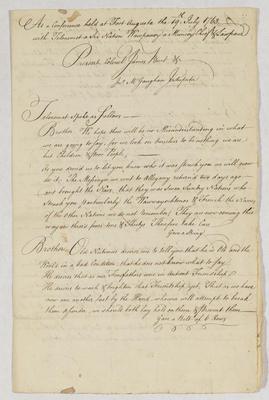 At a Conference held at Fort Augusta the 19th July 1763
with Telenemut a Six Nation Wampaway a Muncey Chief &
Present Colonel James Burd &c
McGaughan Interpreter
Telenemut Spoke as follows
Brother We hope there will be no Misunderstanding in what
we are going to say, for we look on ourselves to be nothing we are
but Children & poor People.
As you desired us to let you know who it was struck you we will now
do it. The Messenger we sent to Allegany returned two days ago
and brought the News, that they were Seven Sundry Nations who
struck you particularly the Wawayachtanos & French the Names
of the other Nations we do not remember They are now coming this
way on three's four's ten's & thirty's Therefore take Care
Gave a String
Brother Old Nutimus desires me to tell you that he is Old and the
World in a bad Condition, that he does not know what to say.
He desires that as our Forefathers were in mutual Friendship
He desires to mark & brighten that Friendship yet, That as we have
now one another fast by the Hand whoever will attempt to break
them asunder, we should both lay hold on them & prevent them
Gave a Belt of 6 Rows